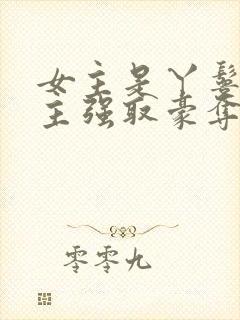 女主是丫鬟
主强取豪夺
零零九